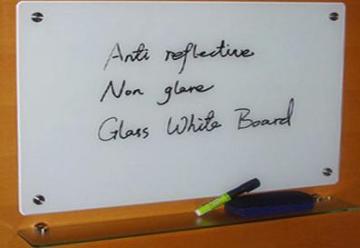 Anti reflective
Non glare
Glass White Board